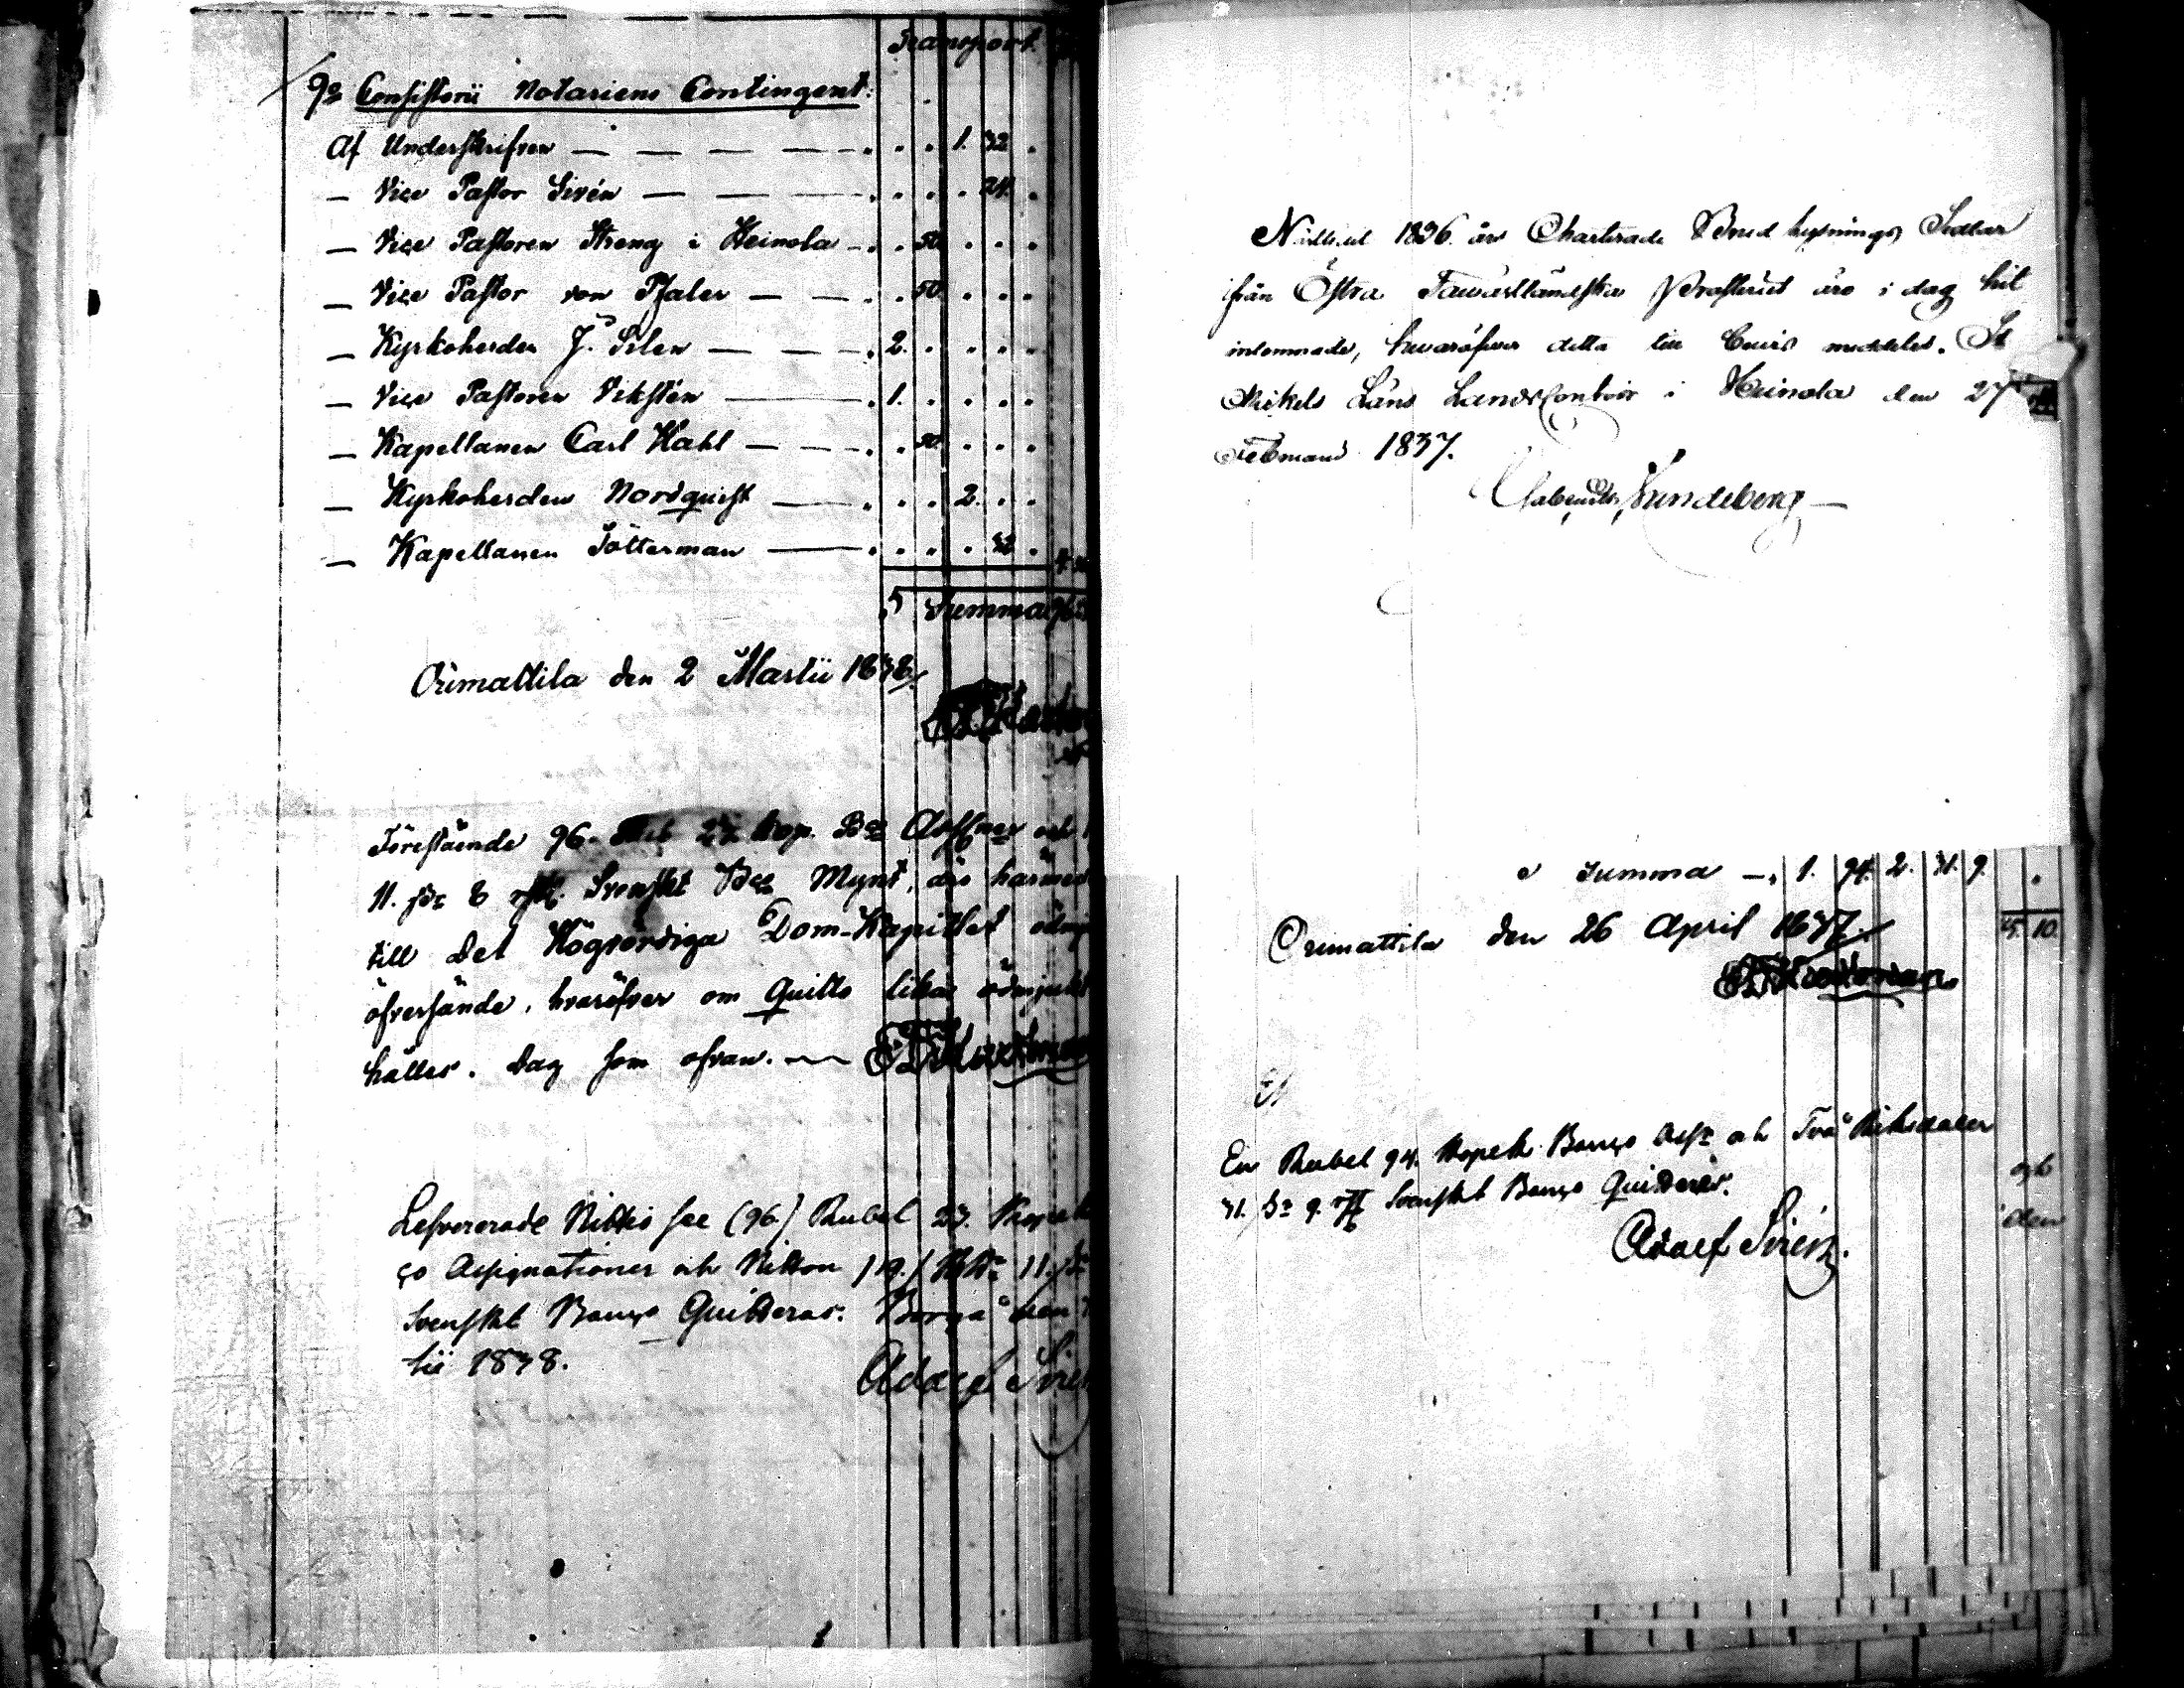 Transport
9o Consistorii Notariens Contingent:
Af Underskrifven — — — — 1. 32
— Vice Pastor Sirén — — — 24.
— Vice Pastoren Streng i Heinola — 50.
— Vice Pastor von Pfaler — — 50.
— Kyrkoherden J. Selen — — — 2.
— Vice Pastoren Vekstén — 1.
— Kapellanen Carl Hahl — — — 50.
— Kyrkoherden Nordquist — 2.
— Kapellanen Tötterman — 32.
Summa 96
Orimattila den 2 Martii 1838.
Förestående 96. Kop. Bco Assgner och
11. sk 8 rst. Svenskt Bco Mynt, äro härmed
till Det Högvördiga Dom-Kapitlet
öfversände, hvaröfver om Quitto likas ödmjukt
hålles. Dag som ofvan.
Lefvererade Nittio sex (96) Rubel 23. Kopek
ço Assignationer och Nitton (19.) 11. sk
Svenskt Banço Quitteras. Borgå den
tii 1838.
Adolf Sirén
1836 års Charterade Brud lysnings Sedlar
ifrån Östra Tavastländska Prosteriet äro i dag hit
inlemnade, hvaröfver detta till bevis meddelas. St
Mikels Läns LandsContoir i Heinola den 27
Februarii 1837.
Lundeberg
Summa — 1. 94. 2. 31. 9.
Orimattila den 26 April 1837.
15. 10
En Rubel 94. Kopek Banço Assr och Två Riksdaler
31. sk 9. rst Svenskt Banço Quitteras.
och
den
Adolf Sirén.